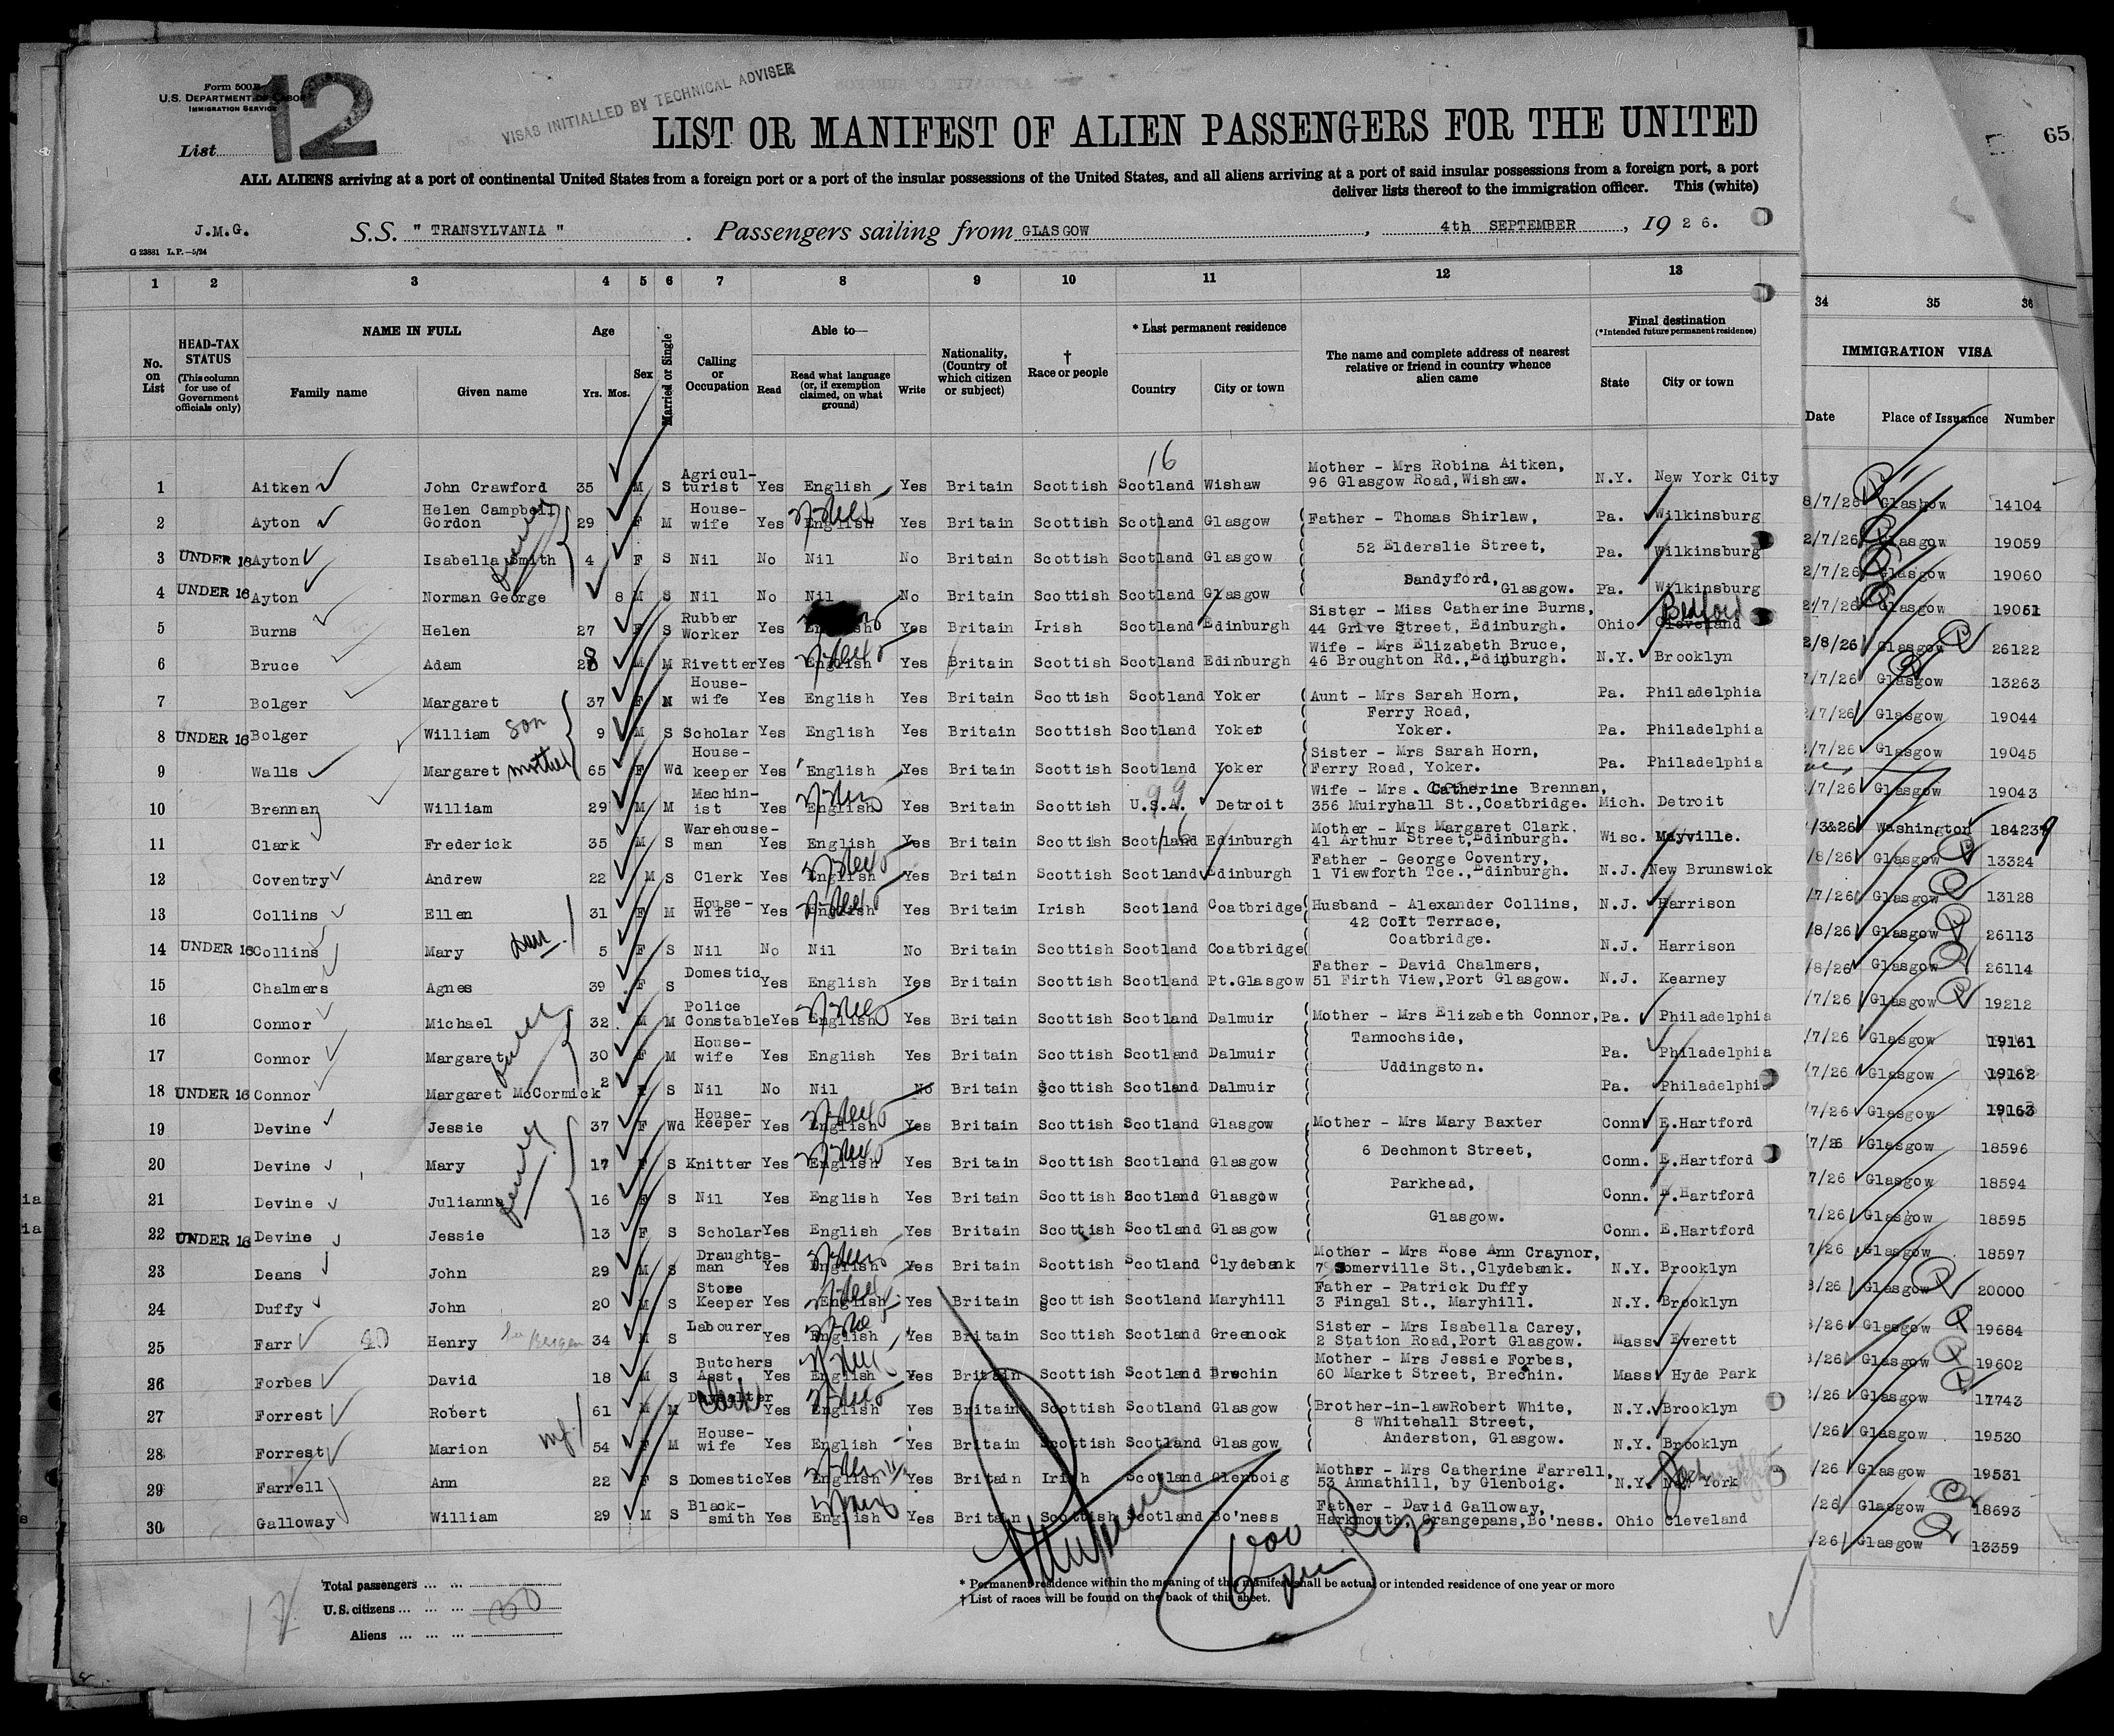 Form 500 B
U.S. DEPARTMENT OF LABOR
IMMIGRATION SERVICE
12
VISAS INITIALLED BY TECHNICAL ADVISER
List
65
LIST OR MANIFEST OF ALIEN PASSENGERS FOR THE UNITED
ALL ALIENS arriving at a port of continental United States from a foreign port or a port of the insular possessions of the United States, and all aliens arriving at a port of said insular possessions from a foreign port, a port
deliver lists thereof to the immigration officer. This (white)
J.M.G. S.S. " TRANSYLVANIA " . Passengers sailing from GLASGOW , 4th SEPTEMBER , 19 2 6.
G 23881 L.P.—5/24
1 2 3 4 5 6 7 8 9 10 11 12 13 34 35 36
No. on List
HEAD-TAX STATUS (This column for use of Government officials only)
NAME IN FULL Family name Given name
Age Yrs. Mos.
Sex
Married or Single
Calling or Occupation
Able to— Read Read what language (or, if exemption claimed, on what ground) Write
Nationality, (Country of which citizen or subject)
† Race or people
* Last permanent residence Country City or town
The name and complete address of nearest relative or friend in country whence alien came
Final destination (*Intended future permanent residence) State City or town
IMMIGRATION VISA Date Place of Issuance Number
16
1 Aitken John Crawford 35 M S Agricul-turist Yes English Yes Britain Scottish Scotland Wishaw Mother - Mrs Robina Aitken, 96 Glasgow Road, Wishaw. N.Y. New York City 8/7/26 Glasgow 14104
2 Ayton Helen Campbell Gordon 29 F M House-wife Yes English Yes Britain Scottish Scotland Glasgow Father - Thomas Shirlaw, Pa. Wilkinsburg 2/7/26 Glasgow 19059
3 UNDER 16 Ayton Isabella Smith 4 F S Nil No Nil No Britain Scottish Scotland Glasgow 52 Elderslie Street, Pa. Wilkinsburg 2/7/26 Glasgow 19060
family
4 UNDER 16 Ayton Norman George 8 M S Nil No Nil No Britain Scottish Scotland Glasgow Dandyford, Glasgow. Pa. Wilkinsburg 2/7/26 Glasgow 19061
5 Burns Helen 27 F S Rubber Worker Yes English Yes Britain Irish Scotland Edinburgh Sister - Miss Catherine Burns, 44 Grive Street, Edinburgh. Ohio Cleveland Bedford 2/8/26 Glasgow 26122
6 Bruce Adam 28 M M Rivetter Yes English Yes Britain Scottish Scotland Edinburgh Wife - Mrs Elizabeth Bruce, 46 Broughton Rd., Edinburgh. N.Y. Brooklyn 7/7/26 Glasgow 13263
7 Bolger Margaret 37 F M House-wife Yes English Yes Britain Scottish Scotland Yoker Aunt - Mrs Sarah Horn, Pa. Philadelphia 2/7/26 Glasgow 19044
8 UNDER 16 Bolger William son 9 M S Scholar Yes English Yes Britain Scottish Scotland Yoker Ferry Road, Yoker. Pa. Philadelphia /7/26 Glasgow 19045
9 Walls Margaret mother 65 F Wd House-keeper Yes English Yes Britain Scottish Scotland Yoker Sister - Mrs Sarah Horn, Ferry Road, Yoker. Pa. Philadelphia /7/26 Glasgow 19043
10 Brennan William 29 M M Machin-ist Yes English Yes Britain Scottish U.S.A. 99 Detroit Wife - Mrs. Catherine Brennan, 356 Muiryhall St., Coatbridge. Mich. Detroit /3&26 Washington 184239
11 Clark Frederick 35 M S Warehouse-man Yes English Yes Britain Scottish Scotland 16 Edinburgh Mother - Mrs Margaret Clark. 41 Arthur Street, Edinburgh. Wisc. Mayville. /8/26 Glasgow 13324
12 Coventry Andrew 22 M S Clerk Yes English Yes Britain Scottish Scotland Edinburgh Father - George Coventry, 1 Viewforth Tce., Edinburgh. N.J. New Brunswick /7/26 Glasgow 13128
13 Collins Ellen 31 F M House-wife Yes English Yes Britain Irish Scotland Coatbridge Husband - Alexander Collins, N.J. Harrison /8/26 Glasgow 26113
14 UNDER 16 Collins Mary dau. 5 F S Nil No Nil No Britain Scottish Scotland Coatbridge 42 Colt Terrace, Coatbridge. N.J. Harrison /8/26 Glasgow 26114
15 Chalmers Agnes 39 F S Domestic Yes English Yes Britain Scottish Scotland Pt.Glasgow Father - David Chalmers, 51 Firth View, Port Glasgow. N.J. Kearney /7/26 Glasgow 19212
16 Connor Michael 32 M M Police Constable Yes English Yes Britain Scottish Scotland Dalmuir Mother - Mrs Elizabeth Connor, Pa. Philadelphia /7/26 Glasgow 19161
17 Connor Margaret 30 F M House-wife Yes English Yes Britain Scottish Scotland Dalmuir Tannochside, Pa. Philadelphia /7/26 Glasgow 19162
family
18 UNDER 16 Connor Margaret McCormick 2 F S Nil No Nil No Britain Scottish Scotland Dalmuir Uddingston. Pa. Philadelphia /7/26 Glasgow 19163
19 Devine Jessie 37 F Wd House-keeper Yes English Yes Britain Scottish Scotland Glasgow Mother - Mrs Mary Baxter Conn E.Hartford 7/26 Glasgow 18596
20 Devine Mary 17 F S Knitter Yes English Yes Britain Scottish Scotland Glasgow 6 Dechmont Street, Conn. E.Hartford 7/26 Glasgow 18594
family
21 Devine Julianna 16 F S Nil Yes English Yes Britain Scottish Scotland Glasgow Parkhead, Conn. E.Hartford 7/26 Glasgow 18595
22 UNDER 16 Devine Jessie 13 F S Scholar Yes English Yes Britain Scottish Scotland Glasgow Glasgow. Conn. E.Hartford 7/26 Glasgow 18597
23 Deans John 29 M S Draughts-man Yes English Yes Britain Scottish Scotland Clydebank Mother - Mrs Rose Ann Craynor, 7 Somerville St., Clydebank. N.Y. Brooklyn 8/26 Glasgow 20000
24 Duffy John 20 M S Store Keeper Yes English Yes Britain Scottish Scotland Maryhill Father - Patrick Duffy 3 Fingal St., Maryhill. N.Y. Brooklyn 8/26 Glasgow 19684
25 Farr Henry 34 M S Labourer Yes English Yes Britain Scottish Scotland Greenock Sister - Mrs Isabella Carey, 2 Station Road, Port Glasgow. Mass Everett 8/26 Glasgow 19602
26 Forbes David 18 M S Butchers Asst. Yes English Yes Britain Scottish Scotland Brechin Mother - Mrs Jessie Forbes, 60 Market Street, Brechin. Mass Hyde Park /26 Glasgow 11743
27 Forrest Robert 61 M M Clerk Yes English Yes Britain Scottish Scotland Glasgow Brother-in-law Robert White, N.Y. Brooklyn /26 Glasgow 19530
28 Forrest Marion 54 F M House-wife Yes English Yes Britain Scottish Scotland Glasgow 8 Whitehall Street, Anderston, Glasgow. N.Y. Brooklyn /26 Glasgow 19531
29 Farrell Ann 22 F S Domestic Yes English Yes Britain Irish Scotland Glenboig Mother - Mrs Catherine Farrell, 53 Annathill, by Glenboig. N.Y. New York /26 Glasgow 18693
30 Galloway William 29 M S Black-smith Yes English Yes Britain Scottish Scotland Bo'ness Father - David Galloway, Harkmouth, Grangepans, Bo'ness. Ohio Cleveland /26 Glasgow 13359
Total passengers ... ...
U.S. citizens ... ... ... 30
Aliens ... ... ...
17
* Permanent residence within the meaning of this manifest shall be actual or intended residence of one year or more
† List of races will be found on the back of this sheet.